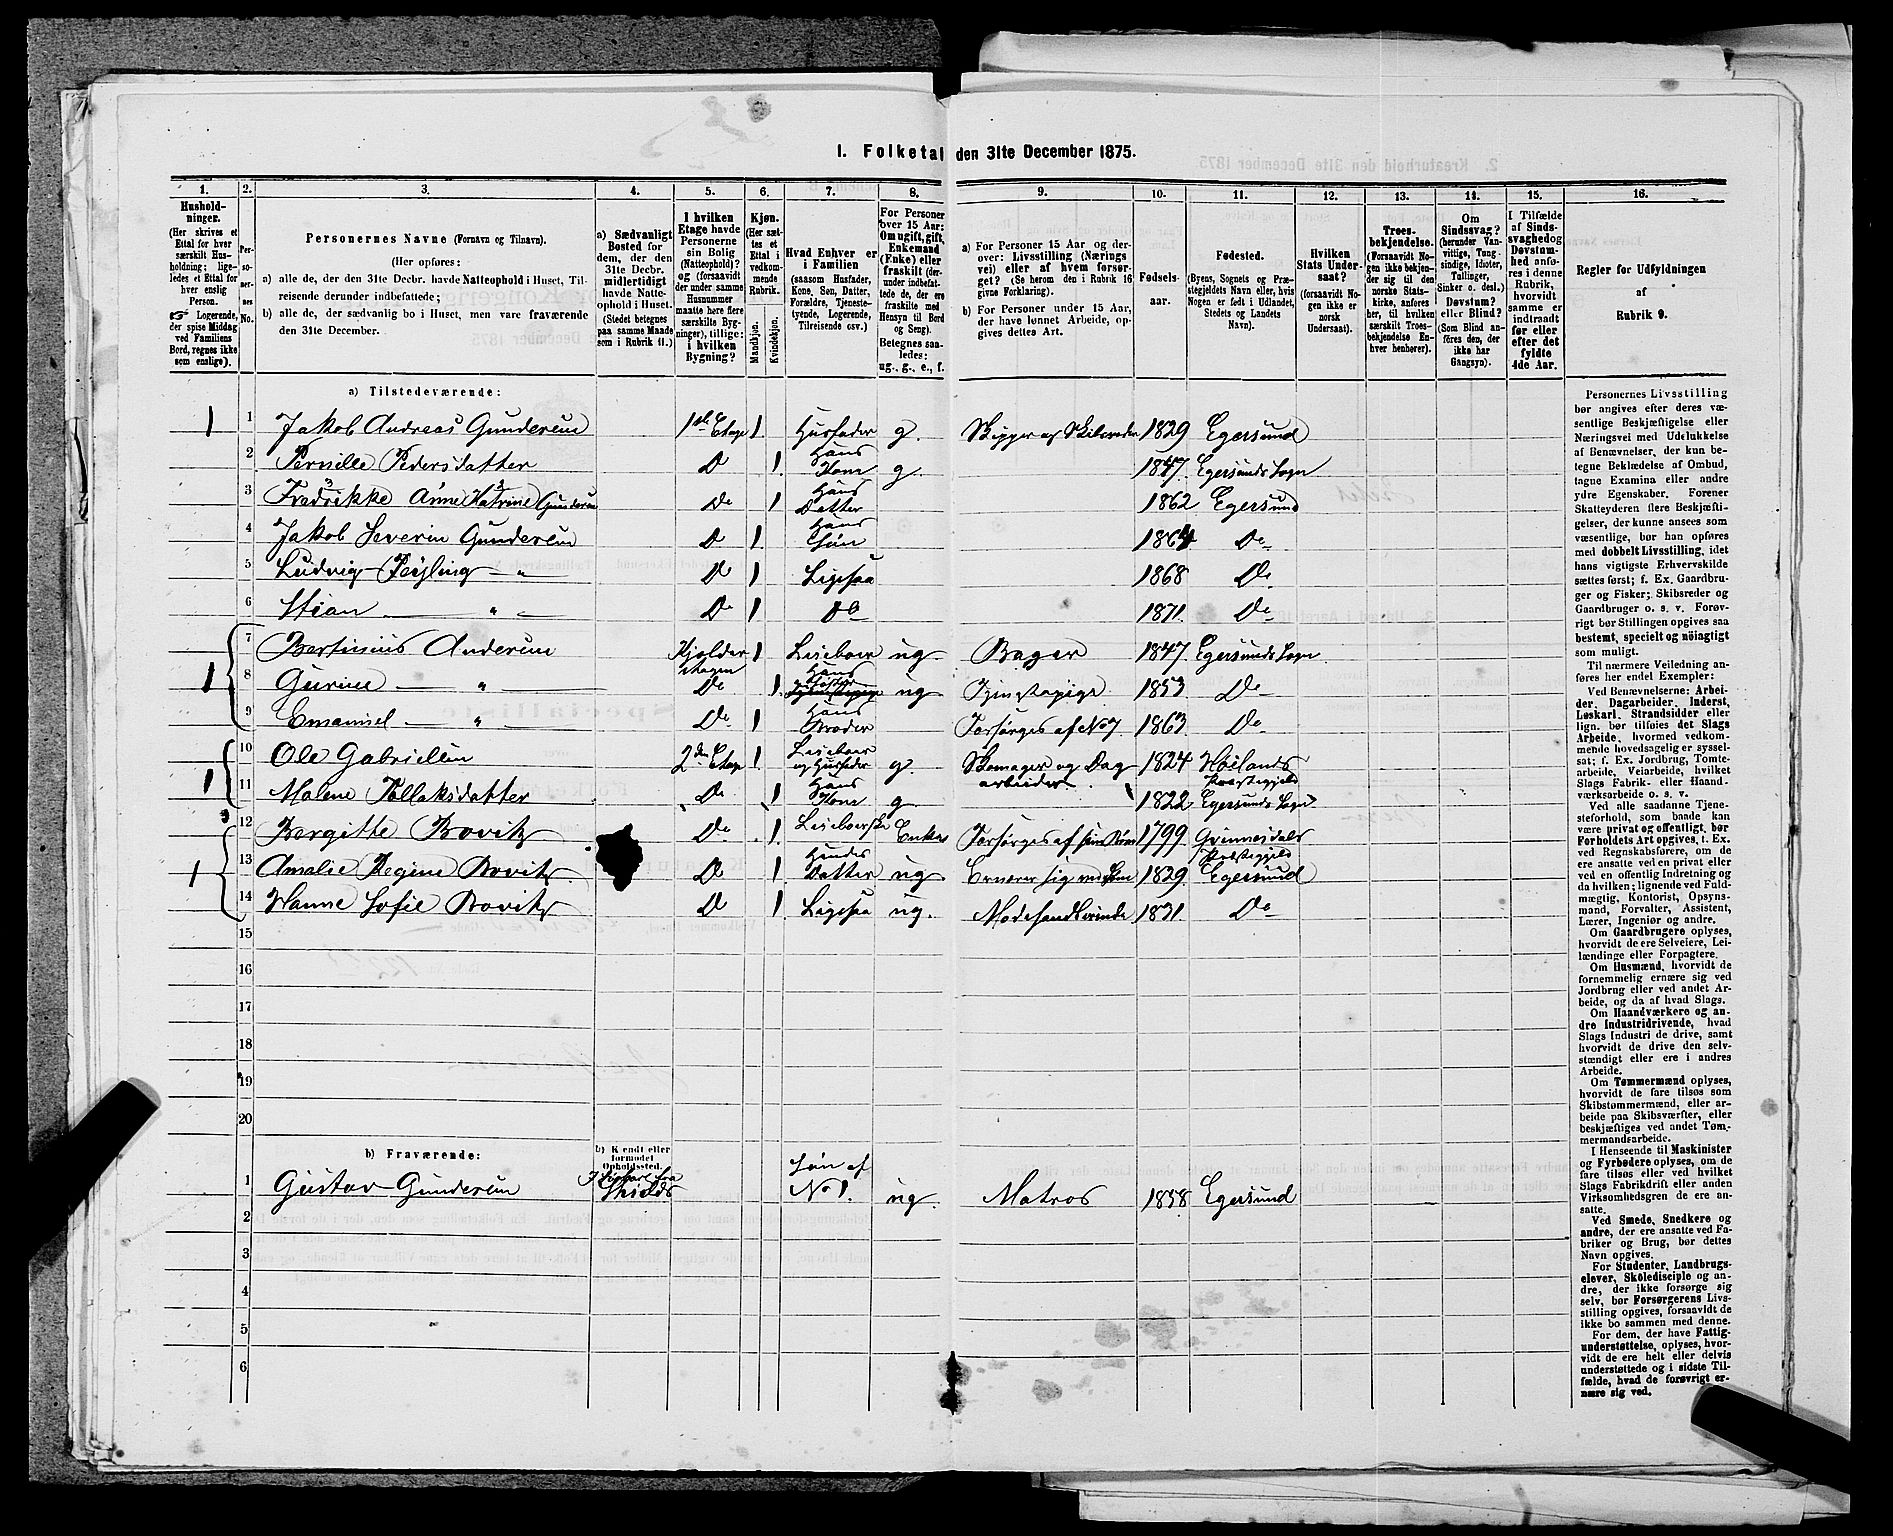 1. Folketal den 31te December 1875.
1. 2. 3. 4. 5. 6. 7. 8. 9. 10. 11. 12. 13. 14. 15. 16.
Hushold-
ninger.
(Her skrives et
Ettal for hver
særskilt Hus-
holdning; lige-
ledes et Ettal for
hver enslig
Person.
☞ Logerende,
der spise Middag
ved Familiens
Bord, regnes ikke
som enslige).
Per-
so-
ner-
nes
No.
Personernes Navne (Fornavn og Tilnavn).
(Her opføres:
a) alle de, der den 31te Decbr. havde Natteophold i Huset, Til-
reisende derunder indbefattede;
b) alle de, der sædvanlig bo i Huset, men vare fraværende
den 31te December.
a) Sædvanligt
Bosted for
dem, der den
31te Decbr.
midlertidigt
havde Natte-
ophold i Huset.
(Stedet betegnes
paa samme Maade
som i Rubrik 11.)
I hvilken
Etage havde
Personerne
sin Bolig
(Natteophold)?
og (forsaavidt
der under samme
Husnummer
maatte høre flere
særskilte Byg-
ninger), tillige:
i hvilken
Bygning?
Kjøn.
(Her sæt-
tes et
Ettal i
vedkom-
mende
Rubrik.
Mandkjøn.
Kvindekjøn.
Hvad Enhver er
i Familien
(saasom Husfader,
Kone, Søn, Datter,
Forældre, Tjeneste-
tyende, Logerende,
Tilreisende osv.)
For Personer
over 15 Aar:
Om ugift, gift,
Enkemand
(Enke) eller
fraskilt (der-
under indbefat-
tede de, der ere
fraskilte med
Hensyn til Bord
og Seng).
Betegnes saa-
ledes:
ug., g., e., f.
a) For Personer 15 Aar og der-
over: Livsstilling (Nærings
vei) eller af hvem forsør-
get? (Se herom den i Rubrik 16
givne Forklaring).
b) For Personer under 15 Aar,
der have lønnet Arbeide, op-
gives dettes Art.
Fødsels-
aar.
Fødested.
(Byens, Sognets og Præ-
stegjeldets Navn eller, hvis
Nogen er født i Udlandet,
Stedets og Landets
Navn).
Hvilken
Stats Under-
saat?
(forsaavidt No-
gen ikke er
norsk
Undersaat).
Troes-
bekjendelse.
(Forsaavidt No-
gen ikke bekjen-
der sig til den
norske Stats-
kirke, anføres
her, til hvilken
særskilt Troes-
bekjendelse En-
hver henhører).
Om
Sindssvag?
(herunder Van-
vittige, Tung-
sindige, Idioter,
Tullinger,
Sinker o. desl.)
Døvstum?
eller Blind?
(Som Blind an-
føres den, der
ikke har
Gangsyn).
I Tilfælde
af Sinds-
svaghed og
Døvstum-
hed anfø-
res i denne
Rubrik,
hvorvidt
samme er
indtraadt
før eller
efter det
fyldte
4de Aar.
Regler for Udfyldningen
af
Rubrik 9.
a) Tilstedeværende:
1 1 Jakob Andreas Gundersen 1ste Etage 1 Husfader g. Skipper og Skibsreder 1829 Egersund
2 Pernille Pedersdatter Do 1 Hans Kone g. 1847 Egersunds Sogn
3 Fredrikke Anne Katrine Gundersen Do 1 Hans Datter 1862 Egersund
4 Jakob Severin Gundersen Do 1 Hans Søn 1864 Do
5 Ludvig Feyling — „ — Do 1 Ligesaa 1868 Do
6 Stian — „ — Do 1 Do 1871 Do
1 7 Bertinius Andersen Kjelder etagen 1 Leieboer ug. Bager 1847 Egersunds Sogn
8 Gurine — „ — Do 1 Hans Søster ug Tjenestepige 1853 Do
9 Emanuel — „ — Do 1 Hans Broder Forsørges af No 7 1863 Do
1 10 Ole Gabrielsen 2den Etage 1 Leieboer og Husfader g. Skomager og Dagarbeider 1824 Høilands Præstegjeld
11 Malene Tollaksdatter Do 1 Hans Kone g 1822 Egersunds Sogn
1 12 Bergitte Bovitz Do 1 Leieboerske Enke Forsørges af sine Børn 1799 Qvinnesdals Præstegjeld
13 Amalie Regine Bovitz Do 1 Hendes Datter ug Ernærer sig ved Søm 1829 Egersund
14 Hanne Sofie Bovitz Do 1 Ligesaa ug. Modehandlerinde 1831 Do
15
16
17
18
19
20
b) Fraværende:
b) Kjendt eller
formodet
Opholdssted.
1 Gustav Gundersen Shields Søn af No 1. ug. Matros 1858 Egersund
2
3
4
5
6
Personernes Livsstilling
bør angives efter deres væ-
sentlige Beskjæftigelse eller
Næringsvei med Udelukkelse
af Benævnelser, der kun be-
tegne Beklædelse af Ombud,
tagne Examina eller andre
ydre Egenskaber. Forener
Skatteyderen flere Beskjæfti-
gelser, der kunne ansees som
væsentlige, bør han opføres
med dobbelt Livsstilling, idet
hans vigtigste Erhvervskilde
sættes først; f. Ex. Gaardbru-
ger og Fisker; Skibsreder og
Gaardbruger o. s. v. Forøv-
rigt bør Stillingen opgives saa
bestemt, specielt og nöiagtigt
som muligt.
Til nærmere Veiledning an-
føres her endel Exempler:
Ved Benævnelserne: Arbei-
der, Dagarbeider, Inderst,
Løskarl, Strandsidder eller
lign. bør tilføies det Slags
Arbeide, hvormed vedkom-
mende hovedsagelig er syssel-
sat; f. Ex. Jordbrug, Tomte-
arbeide, Veiarbeide, hvilket
Slags Fabrik- eller Haand-
værksarbeide o. s. v.
Ved alle saadanne Tjene-
steforhold, som baade kan
være privat og offentlig, bør
Forholdets Art opgives, f. Ex.
ved Regnskabsførere, om de
ere ansatte ved en privat eller
ved en offentlig Indretning og
da hvilken; lignende ved Fuld-
mægtig, Kontorist, Opsyns-
mand, Forvalter, Assistent,
Lærer, Ingeniør og andre.
Om Gaardbrugere oplyses,
hvorvidt de ere Selveiere, Lei-
lændinge eller Forpagtere.
Om Husmænd, hvorvidt de
fornemmelig ernære sig ved
Jordbrug eller ved andet Ar-
beide, og da af hvad Slags.
Om Haandværkere og an-
dre Industridrivende, hvad
Slags Industri de drive, samt
hvorvidt de drive den selv-
stændigt eller ere i andres
Arbeide.
Om Tømmermænd oplyses,
hvorvidt de fare tilsøs som
Skibstømmermænd, eller ar-
beide paa Skibsværfter, eller
beskjæftiges ved andet Tøm-
mermandsarbeide.
I Henseende til Maskinister
og Fyrbødere oplyses, om de
fare tilsøs eller ved hvilket
Slags Fabrikdrift eller anden
Virksomhedsgren de ere an-
satte.
Ved Smede, Snedkere og
andre, der ere ansatte ved Fa-
briker og Brug, bør dettes
Navn opgives.
For Studenter, Landbrugs-
elever, Skoledisciple og an-
dre, der ikke forsørge sig
selv, bør Forsørgerens Livs-
stilling opgives, forsaavidt de
ikke bo sammen med denne.
For dem, der have Fattig-
understøttelse, oplyses, hvor-
vidt de ere helt eller delvis
understøttede og i sidste Til-
fælde, hvad de forøvrigt er-
nære sig ved.